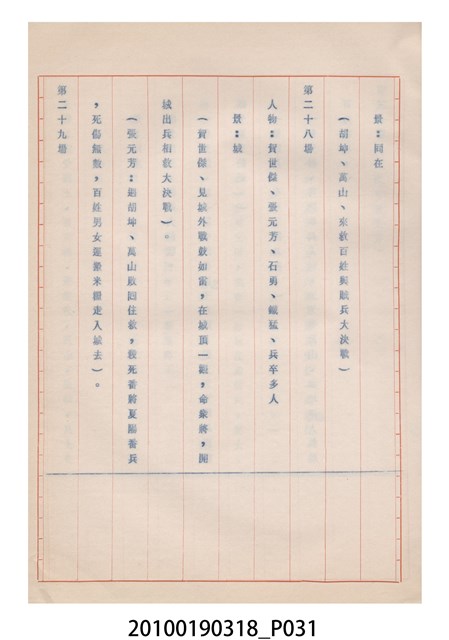 景：同在
(胡坤、萬山、來救百姓與賊兵大決戰)
第二十八場
人物：賀世傑、張元芳、石勇、鐵猛、兵卒多人
景：城
(賀世傑、見城外戰鼓如雷，在城頂一觀，命眾將，開
城出兵相救大決戰)。
(張元芳：跟胡坤、萬山敗回住敵，殺死番將夏陽番兵
，死傷無數，百姓男女運眾米糧走入城去)。
第二十九場
20100190318_P031